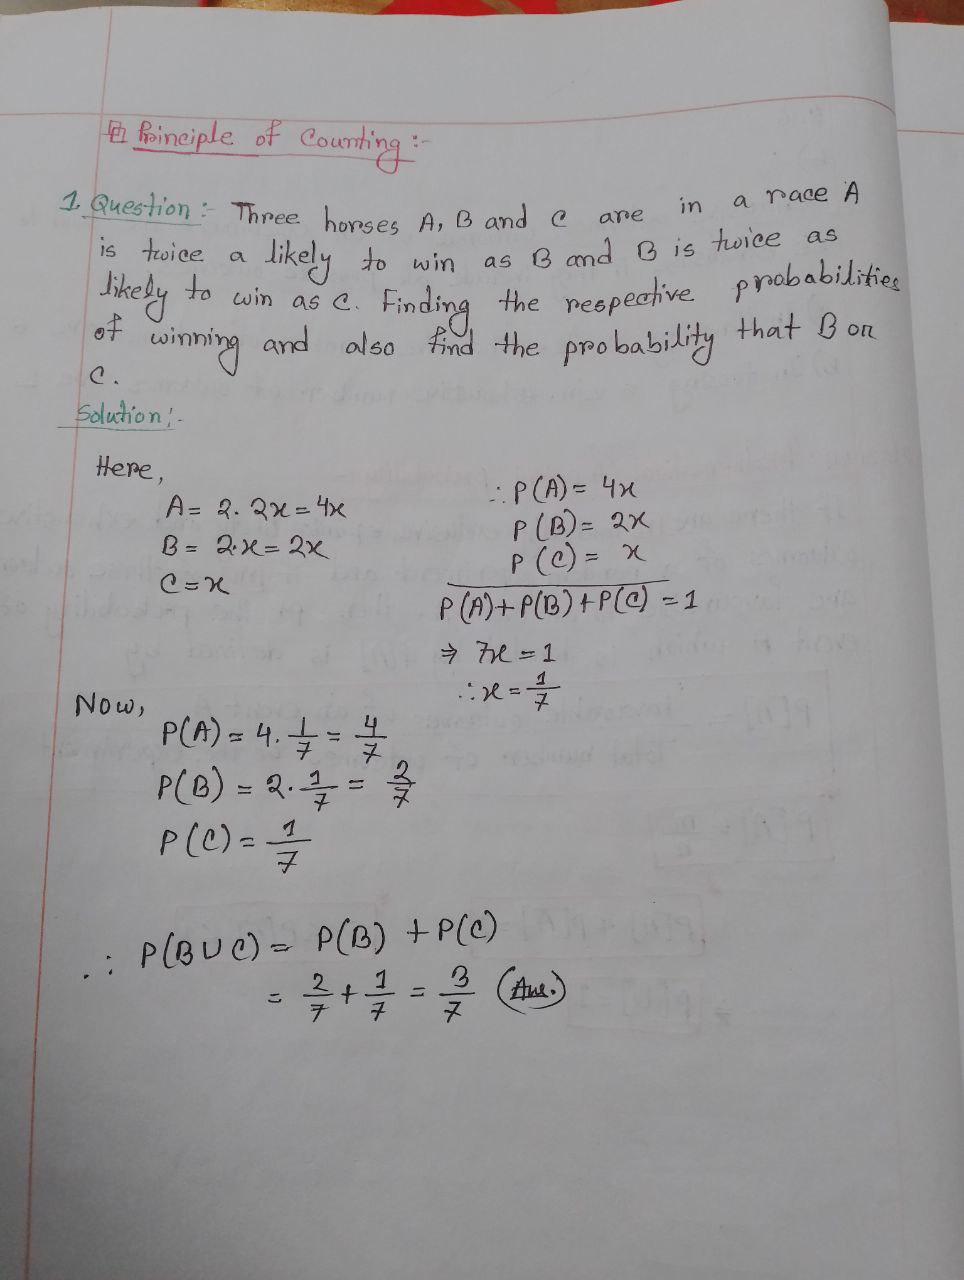 Principle of Counting :-
1. Question :- Three horses A, B and C are in a race A
is twice a likely to win as B and B is twice as
likely to win as C. Finding the respective probabilities
of winning and also find the probability that B or
C.
Solution :-
Here,
A = 2. 2x = 4x
B = 2.x = 2x
C = x
∴ P(A) = 4x
P(B) = 2x
P(C) = x
P(A) + P(B) + P(C) = 1
⇒ 7x = 1
∴ x = 1/7
Now,
P(A) = 4. 1/7 = 4/7
P(B) = 2. 1/7 = 2/7
P(C) = 1/7
∴ P(B∪C) = P(B) + P(C)
= 2/7 + 1/7 = 3/7 (Ans.)